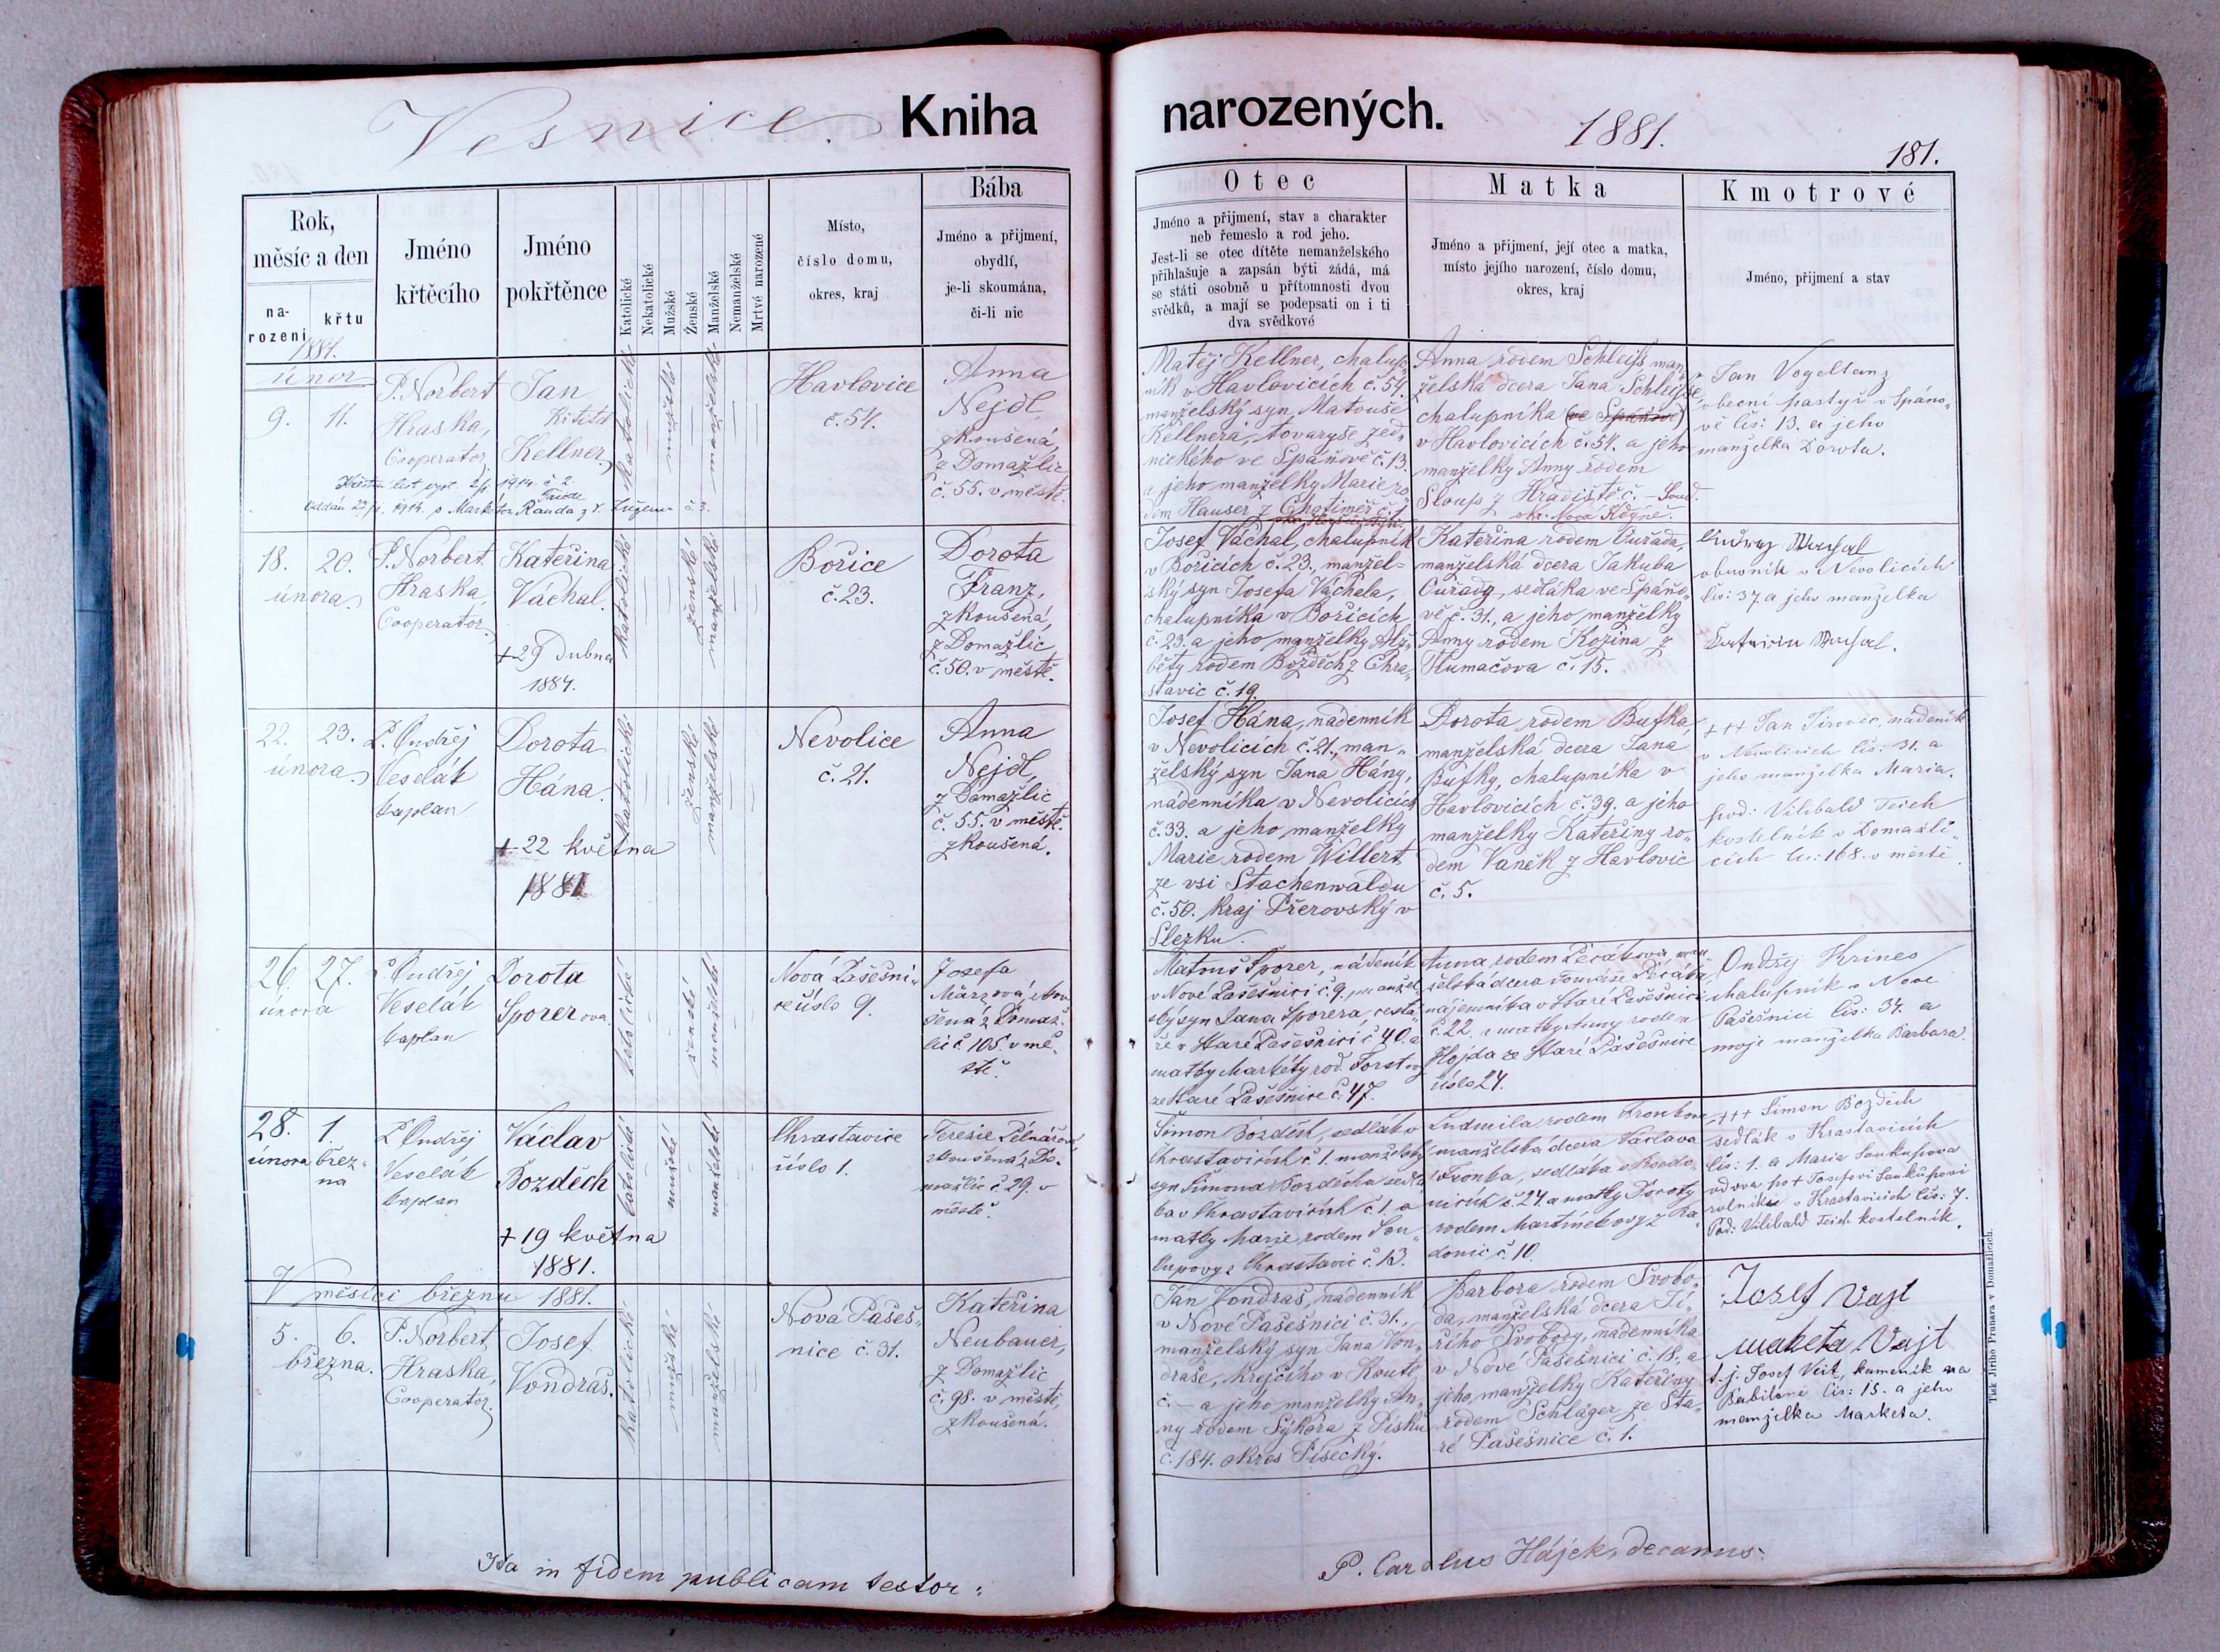 Vesnice.
Kniha
narozených.
1881.
181.
Rok,
měsíc a den
na-
rození
křtu
1881.
Jméno
křtěcího
Jméno
pokřtěnce
Katolické
Nekatolické
Mužské
Ženské
Manželské
Nemanželské
Mrtvé narozené
Místo,
číslo domu,
okres, kraj
Bába
Jméno a přijmení,
obydlí,
je-li skoumána,
či-li nic
Otec
Jméno a přijmení, stav a charakter
neb řemeslo a rod jeho.
Jest-li se otec dítěte nemanželského
přihlašuje a zapsán býti zádá, má
se státi osobně u přítomnosti dvou
svědků, a mají se podepsati on i ti
dva svědkové
Matka
Jméno a přijmení, její otec a matka,
místo jejího narození, číslo domu,
okres, kraj
Kmotrové
Jméno, přijmení a stav
únor
9. 11.
P. Norbert
Hraska,
Cooperator
Jan
Kellner
katolické
mužské
manželské
Havlovice
č. 54.
Anna
Nejdl
zkoušená,
z Domažlic
č. 55. v městě.
Matěj Kellner, chalup-
ník v Havlovicích č. 54.
manželský syn Matouše
Kellnera, tovaryše zed-
nického ve Spáňově č. 13.
a jeho manželky Marie ro-
dem Hauser z Chotiměř č. 1
Anna rodem Schleiss man-
želská dcera Jana Schleisse,
chalupníka (ve Spáňově)
v Havlovicích č. 54. a jeho
manželky Anny rodem
Sloup z Hradiště č. –
okr. Nová Kdýně.
Jan Vogeltanz
obecní pastýř v Spáno-
vě čís: 13. a jeho
manželka Dorota.
18. 20.
února
P. Norbert
Hraska,
Cooperator
Kateřina
Váchal.
+ 29 dubna
1884.
katolické
ženské
manželské
Bořice
č. 23.
Dorota
Franz,
zkoušená,
z Domažlic
č. 50. v městě.
Josef Váchal, chalupník
v Bořicích č. 23., manžel-
ský syn Josefa Váchela,
chalupníka v Bořicích
č. 23. a jeho manželky Alž-
běty rodem Bozděch z Chra-
stavic č. 19.
Kateřina rodem Cuřada,
manželská dcera Jakuba
Cuřady, sedláka ve Spáňo-
vě č. 31., a jeho manželky
Anny rodem Kozina z
Tlumačova č. 15.
obuvník v Nevolicích
čís: 37 a jeho manželka
22. 23.
února
P. Ondřej
Veselák
kaplan
Dorota
Hána.
+ 22 května
1881
katolické
ženské
manželské
Nevolice
č. 21.
Anna
Nejdl,
z Domažlic
č. 55. v městě.
zkoušená.
Josef Hána, nádenník
v Nevolicích č. 21., man-
želský syn Jana Hány,
nádenníka v Nevolicích
č. 33. a jeho manželky
Marie rodem Willert
ze vsi Stachenwaldu
č. 50. kraj Přerovský v
Slezku.
Dorota rodem Bufka,
manželská dcera Jana
Bufky, chalupníka v
Havlovicích č. 39. a jeho
manželky Kateřiny ro-
dem Vaněk z Havlovic
č. 5.
+++ Jan Jirovec, nádeník
v Nevolicích čís: 31. a
jeho manželka Maria.
pod: Vilibald Teich
kostelník v Domažli-
cích čís: 168. v městě.
26. 27.
února
P. Ondřej
Veselák
kaplan
Dorota
Sporerova
katolické
ženské
manželské
Nová Pašešni-
ce číslo 9.
Josefa
Märzová, zkou-
šená z Domaž-
lic č. 105. v mě-
stě.
Matouš Sporer, nádeník
v Nové Pašešnici č. 9., manžel-
ský syn Jana Sporera, cestá-
ře v Staré Pašešnici č. 40. a
matky Markéty rod. Forstovy
ze Staré Pašešnice č. 47.
Anna, rodem Pěcákova, man-
želská dcera Tomáše Pěcáka,
nájemníka v Staré Pašešnici
č. 22. a matky Anny rodem
Hojda ze Staré Pašešnice
číslo 24.
Ondřej Krines
chalupník v Nové
Pašešnici čís: 34. a
moje manželka Barbara.
28. 1.
února břez-
na
P. Ondřej
Veselák
kaplan
Václav
Bozděch
+ 19 května
1881.
katolické
mužské
manželské
Chrastavice
číslo 1.
Terezie Pelnářová,
zkoušená z Do-
mažlic č. 29. v
městě.
Šimon Bozděch, sedlák v
Chrastavicích č. 1. manželský
syn Šimona Bozděcha sedlá-
ka v Chrastavicích č. 1. a
matky Marie rodem Sou-
kupovy z Chrastavic č. 13.
Ludmila rodem Fronkova
manželská dcera Václava
Fronka, sedláka v Rado-
nicích č. 24 a matky Doroty
rodem Martínkovy z Ra-
donic č. 10.
+++ Šimon Bozděch
sedlák v Krastavicích
čís: 1. a Maria Soukupova
vdova po + Josefovi Soukupovi
rolníku v Krastavicích čís: 7.
Pod: Vilibald Teich kostelník.
V měsíci březnu 1881.
5. 6.
března.
P. Norbert
Hraska,
Cooperator
Josef
Vondraš.
katolické
mužské
manželské
Nová Pašeš-
nice č. 31.
Kateřina
Neubauer,
z Domažlic
č. 98. v městě,
zkoušená.
Jan Vondraš, nádenník
v Nové Pašešnici č. 31.,
manželský syn Jana Von-
draše, krejčího v Koutě
č. – a jeho manželky An-
ny rodem Sýkora z Písku
č. 184. okres Písecký.
Barbora rodem Svobo-
da, manželská dcera Ji-
řího Svobody, nádenníka
v Nové Pašešnici č. 18., a
jeho manželky Kateřiny
rodem Schläger ze Sta-
ré Pašešnice č. 1.
Josef Vajt
maketa Vajt
t. j. Josef Veit, kameník na
Babiloně čís: 15. a jeho
manželka Marketa.
Ita in fidem publicam testor:
P. Carolus Hájek, decanus.
Tisk Jiřího Prunara v Domažlicích.